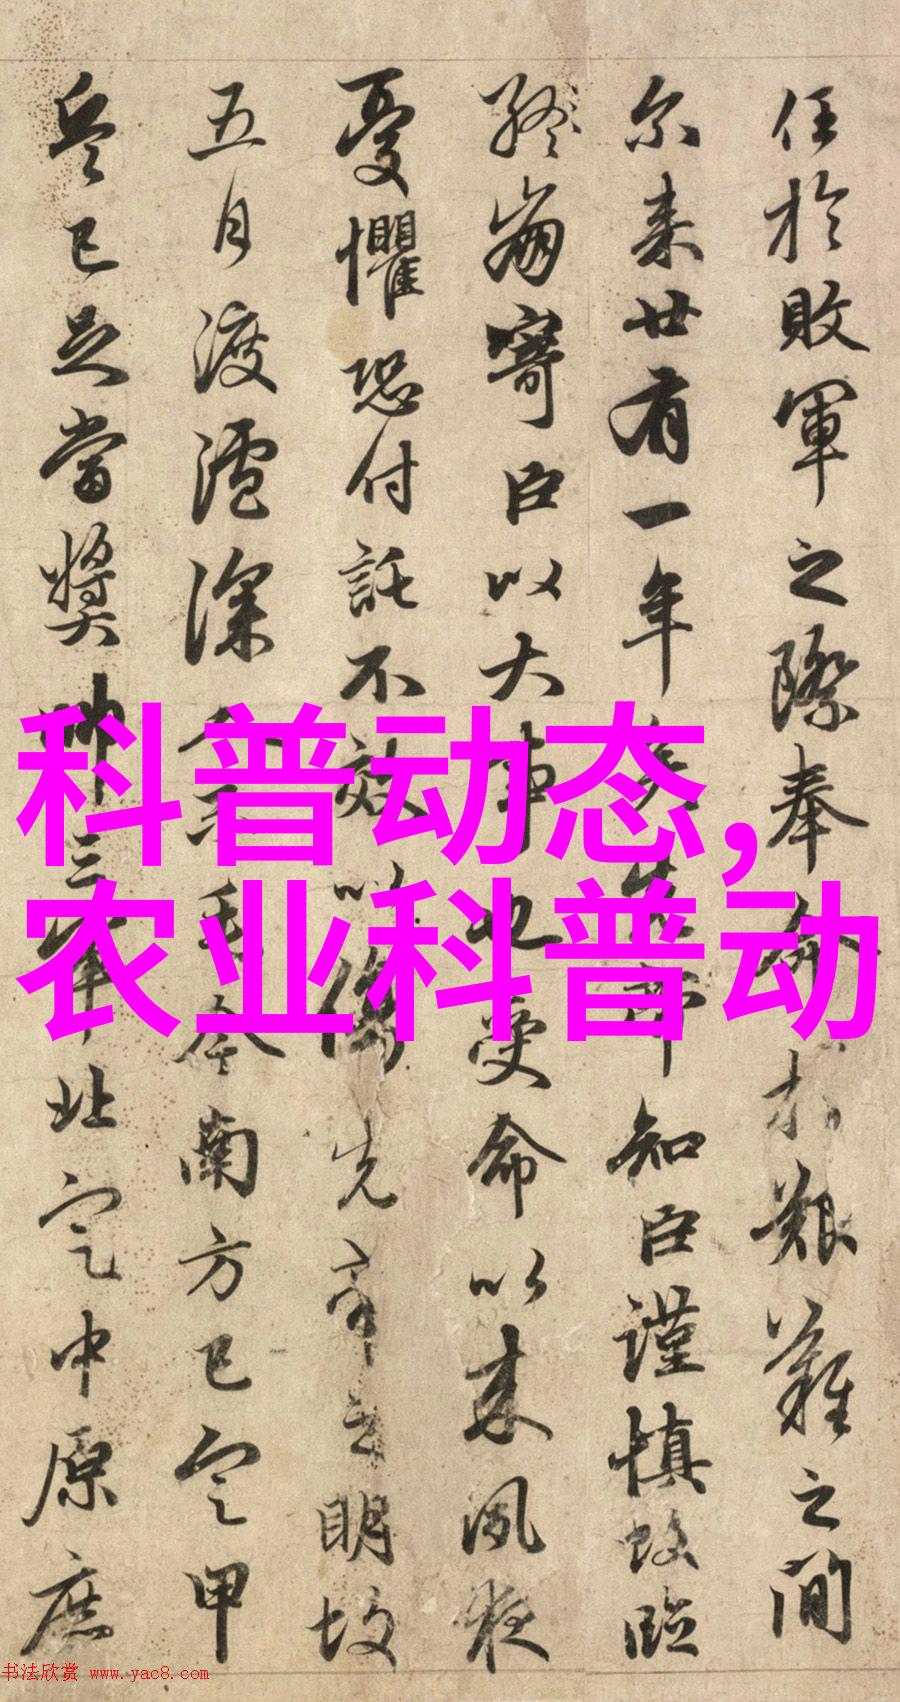 任於敗軍之際奉命於艱難之間
尔来廿有一年矣先帝知臣謹慎故臨
終崩寄臣以大事也受命以来夙夜
憂懼恐付託不效以傷先帝之明故
五月渡瀘深入不毛今南方已定甲
兵已足當獎帥三軍北定中原庶
科普动态,
农业科普动
书法欣赏 www.yac8.com